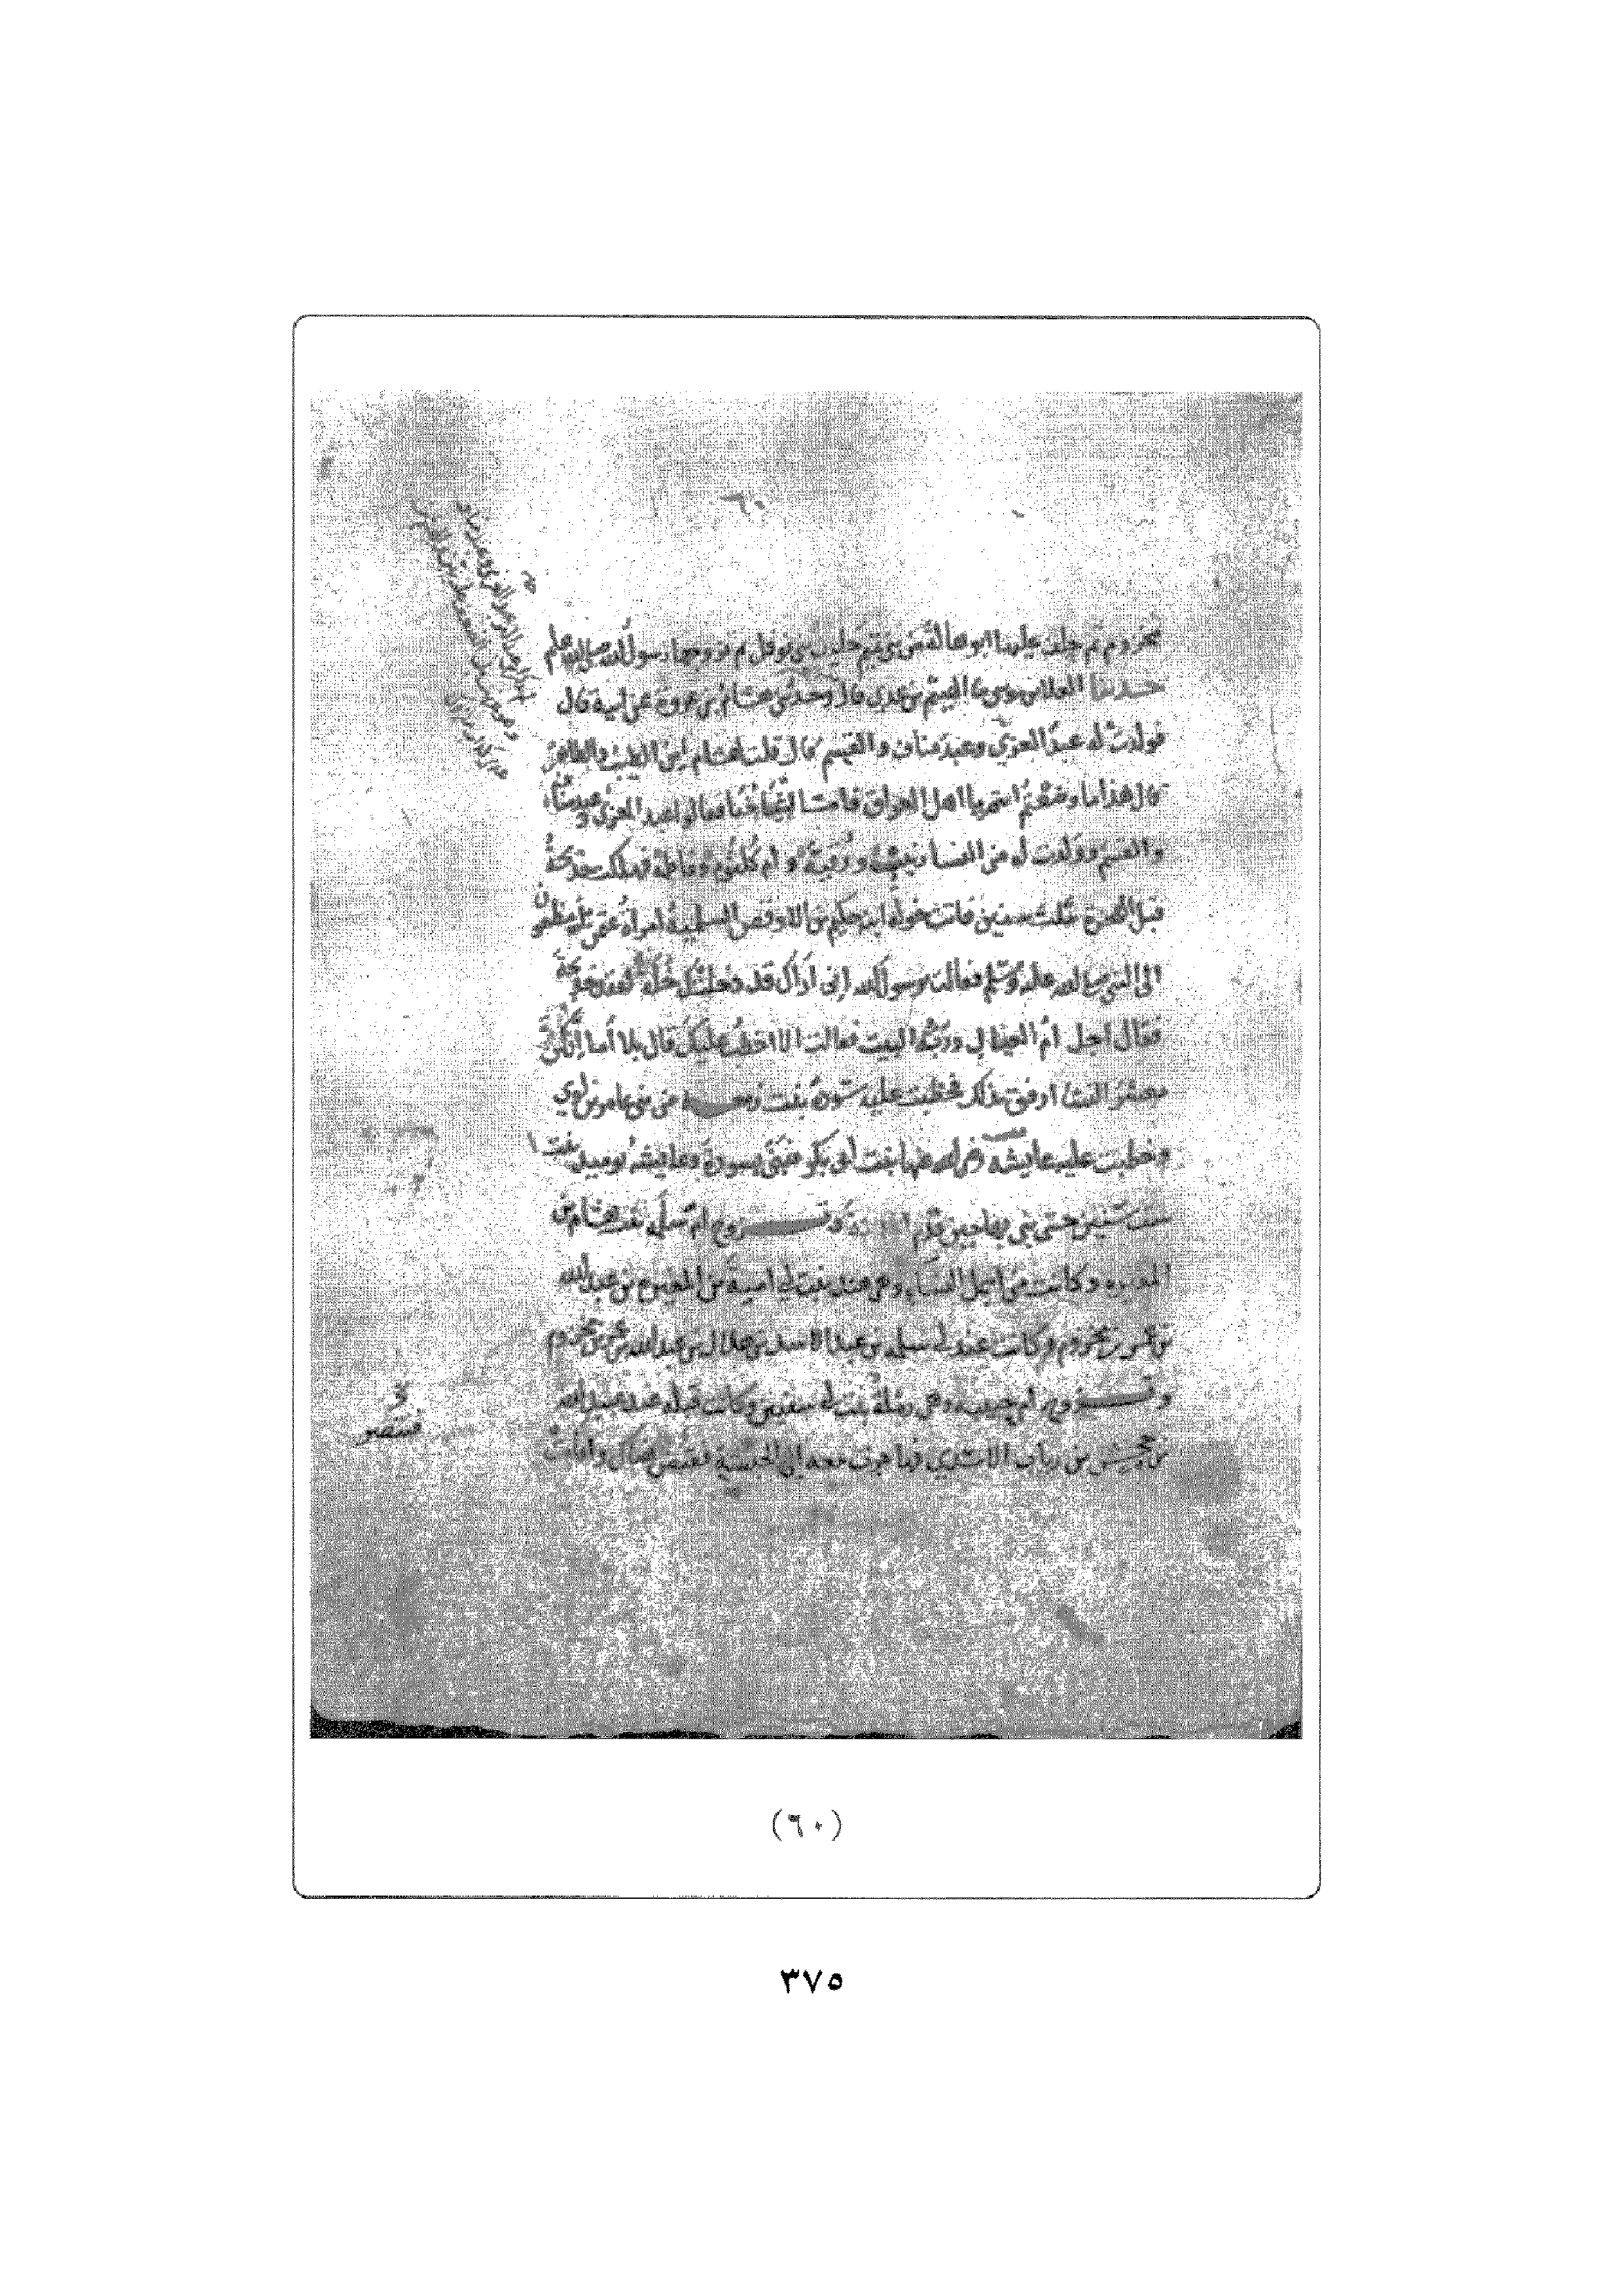 ٦٠
مخزوم ثم خلف عليها ابو هالة من بني تميم حليف بني نوفل ثم تزوجها رسول الله صلى الله عليه
حدثنا العلاء بن موسى نا الهيثم بن عدي قال وحدثني هشام بن عروة عن ابيه قال
فولدت له عبد العزى وعبد مناف والقسم قال قلت لهشام اين الطيب والطاهر
قال هذا ما وضعتم انتم يا اهل العراق فاما اشياخنا فقالوا عبد العزى وعبد مناف
والقسم وولدت له من النسا زينب ورقية وام كلثوم وفاطمة فهلكت خديجة
قبل الهجرة بثلث سنين فاتت خولة ابنة حكيم بن الاوقص السلمية امراة عثمن بن مظعون
الى النبي صلى الله عليه وسلم فقالت يرسول الله اني اراك قد دخلتك خلة لفقد خديجة
فقال اجل ام العيال وربة البيت فقالت الا اخطب عليك قال بلا اما انكن
معشر النسا ارفق بذلك فخطبت عليه سودة بنت زمعة من بني عامر بن لوي
وخطبت عليه عايشة رضي الله عنها بنت ابي بكر فبنى بسودة وعايشة يوميذ بنت
ست سنين حتى بنى بها حين قدم المدينة وتزوج ام سلمة بنت هشام بن
المغيرة وكانت من اجمل النساء وهي هند بنت ابي امية بن المغيرة بن عبد الله
بن عمر بن مخزوم وكانت عند ابي سلمة بن عبد الاسد بن هلال بن عبد الله بن عمر بن مخزوم
وتزوج ام حبيبة وهي رملة بنت ابي سفين وكانت قبله عند عبيد الله
بن جحش بن رياب الاسدي فهاجرت معه الى الحبشة فتنصر هناك واقامت
فتنصر
(٦٠)
٣٧٥